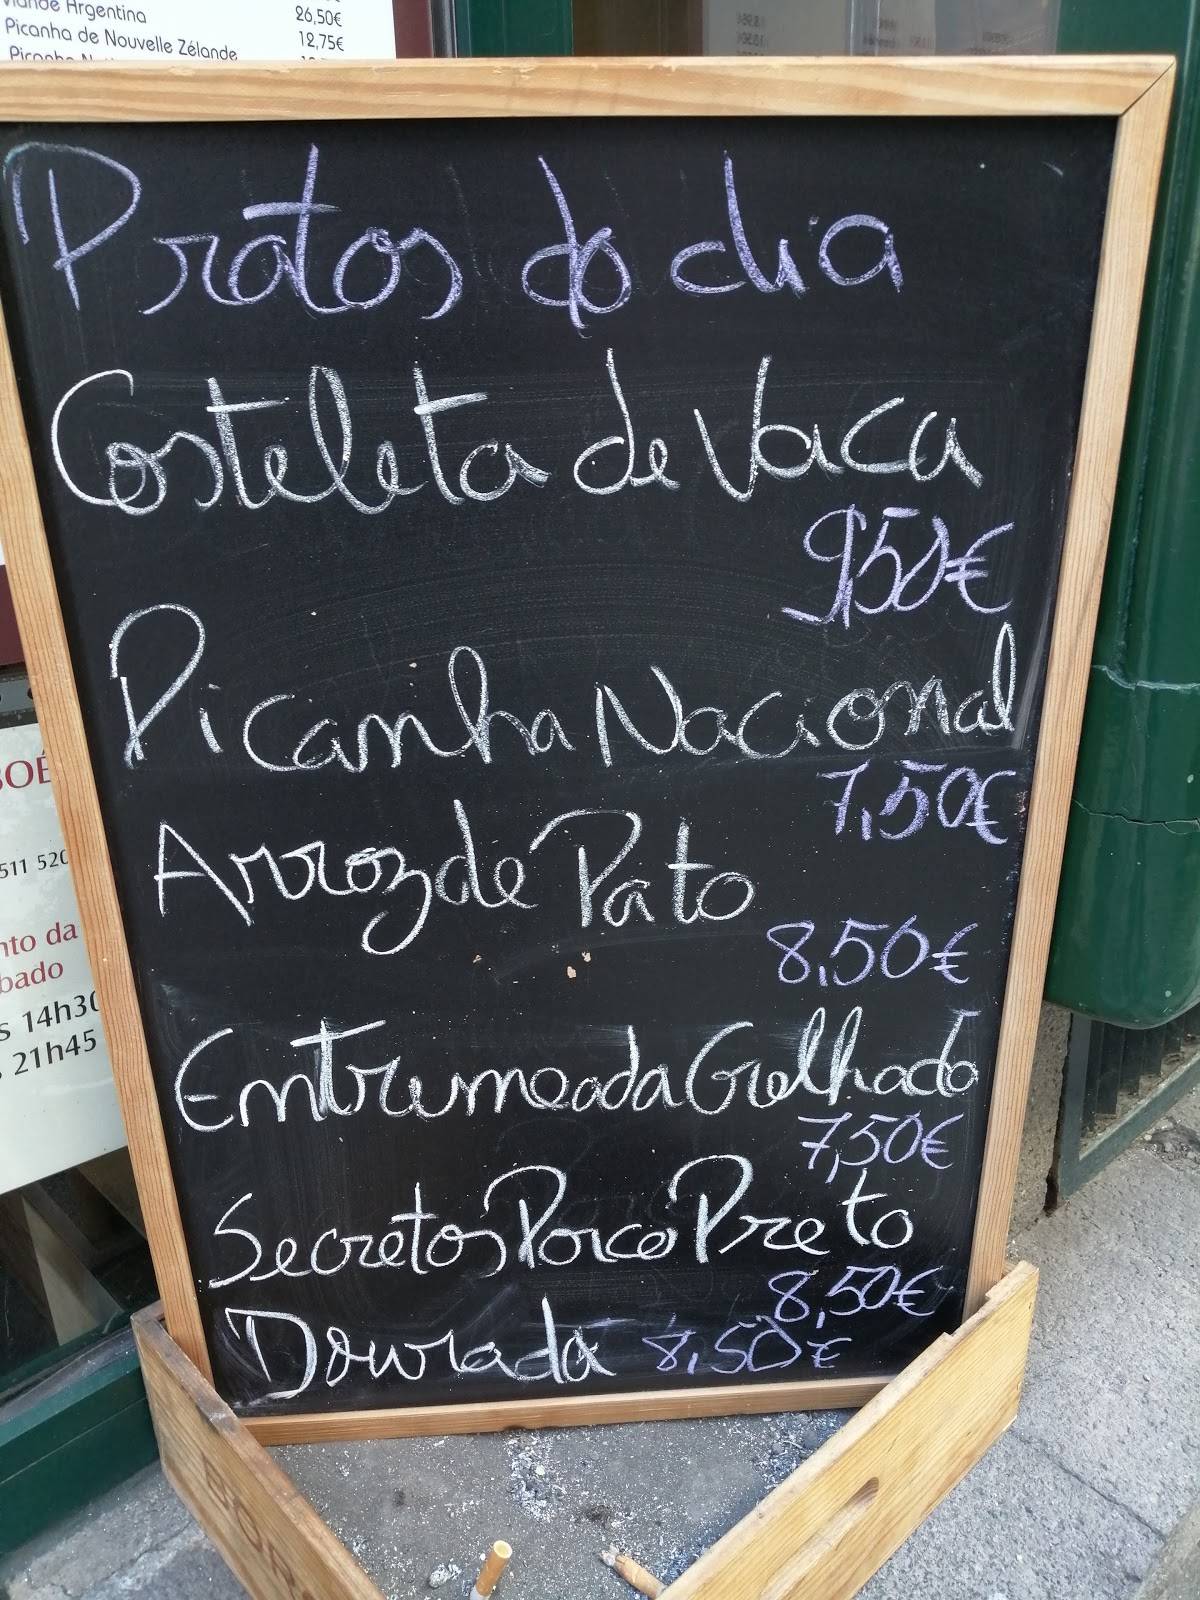 Viande Argentina 26,50€
Picanha de Nouvelle Zélande 12,75€
Pratos do dia
Costeleta de Vaca
9,50€
Picanha Nacional
7,50€
Arroz de Pato
8,50€
Entrumeada Grelhado
7,50€
Secretos Porco Preto
8,50€
Dourada 8,50€
511 520
nto da
bado
s 14h30
21h45